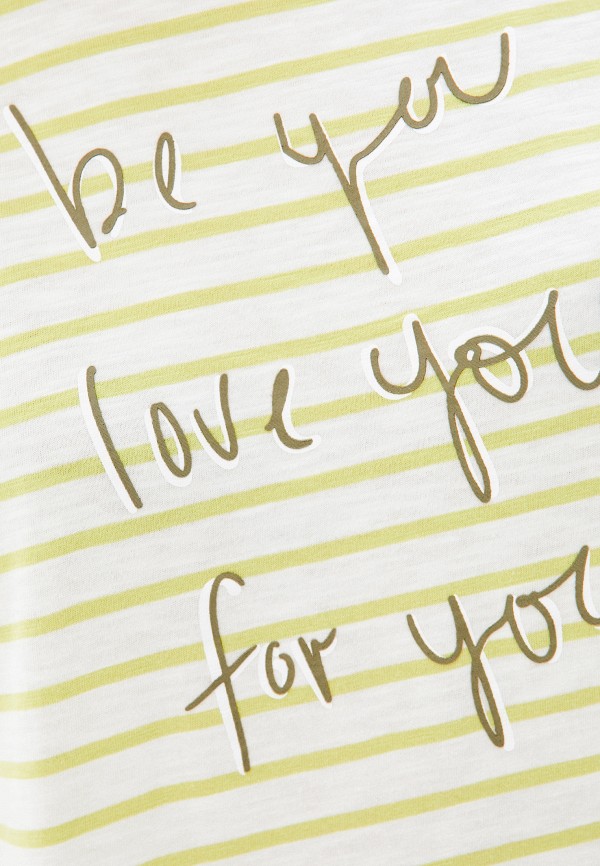 be you
love you
for you